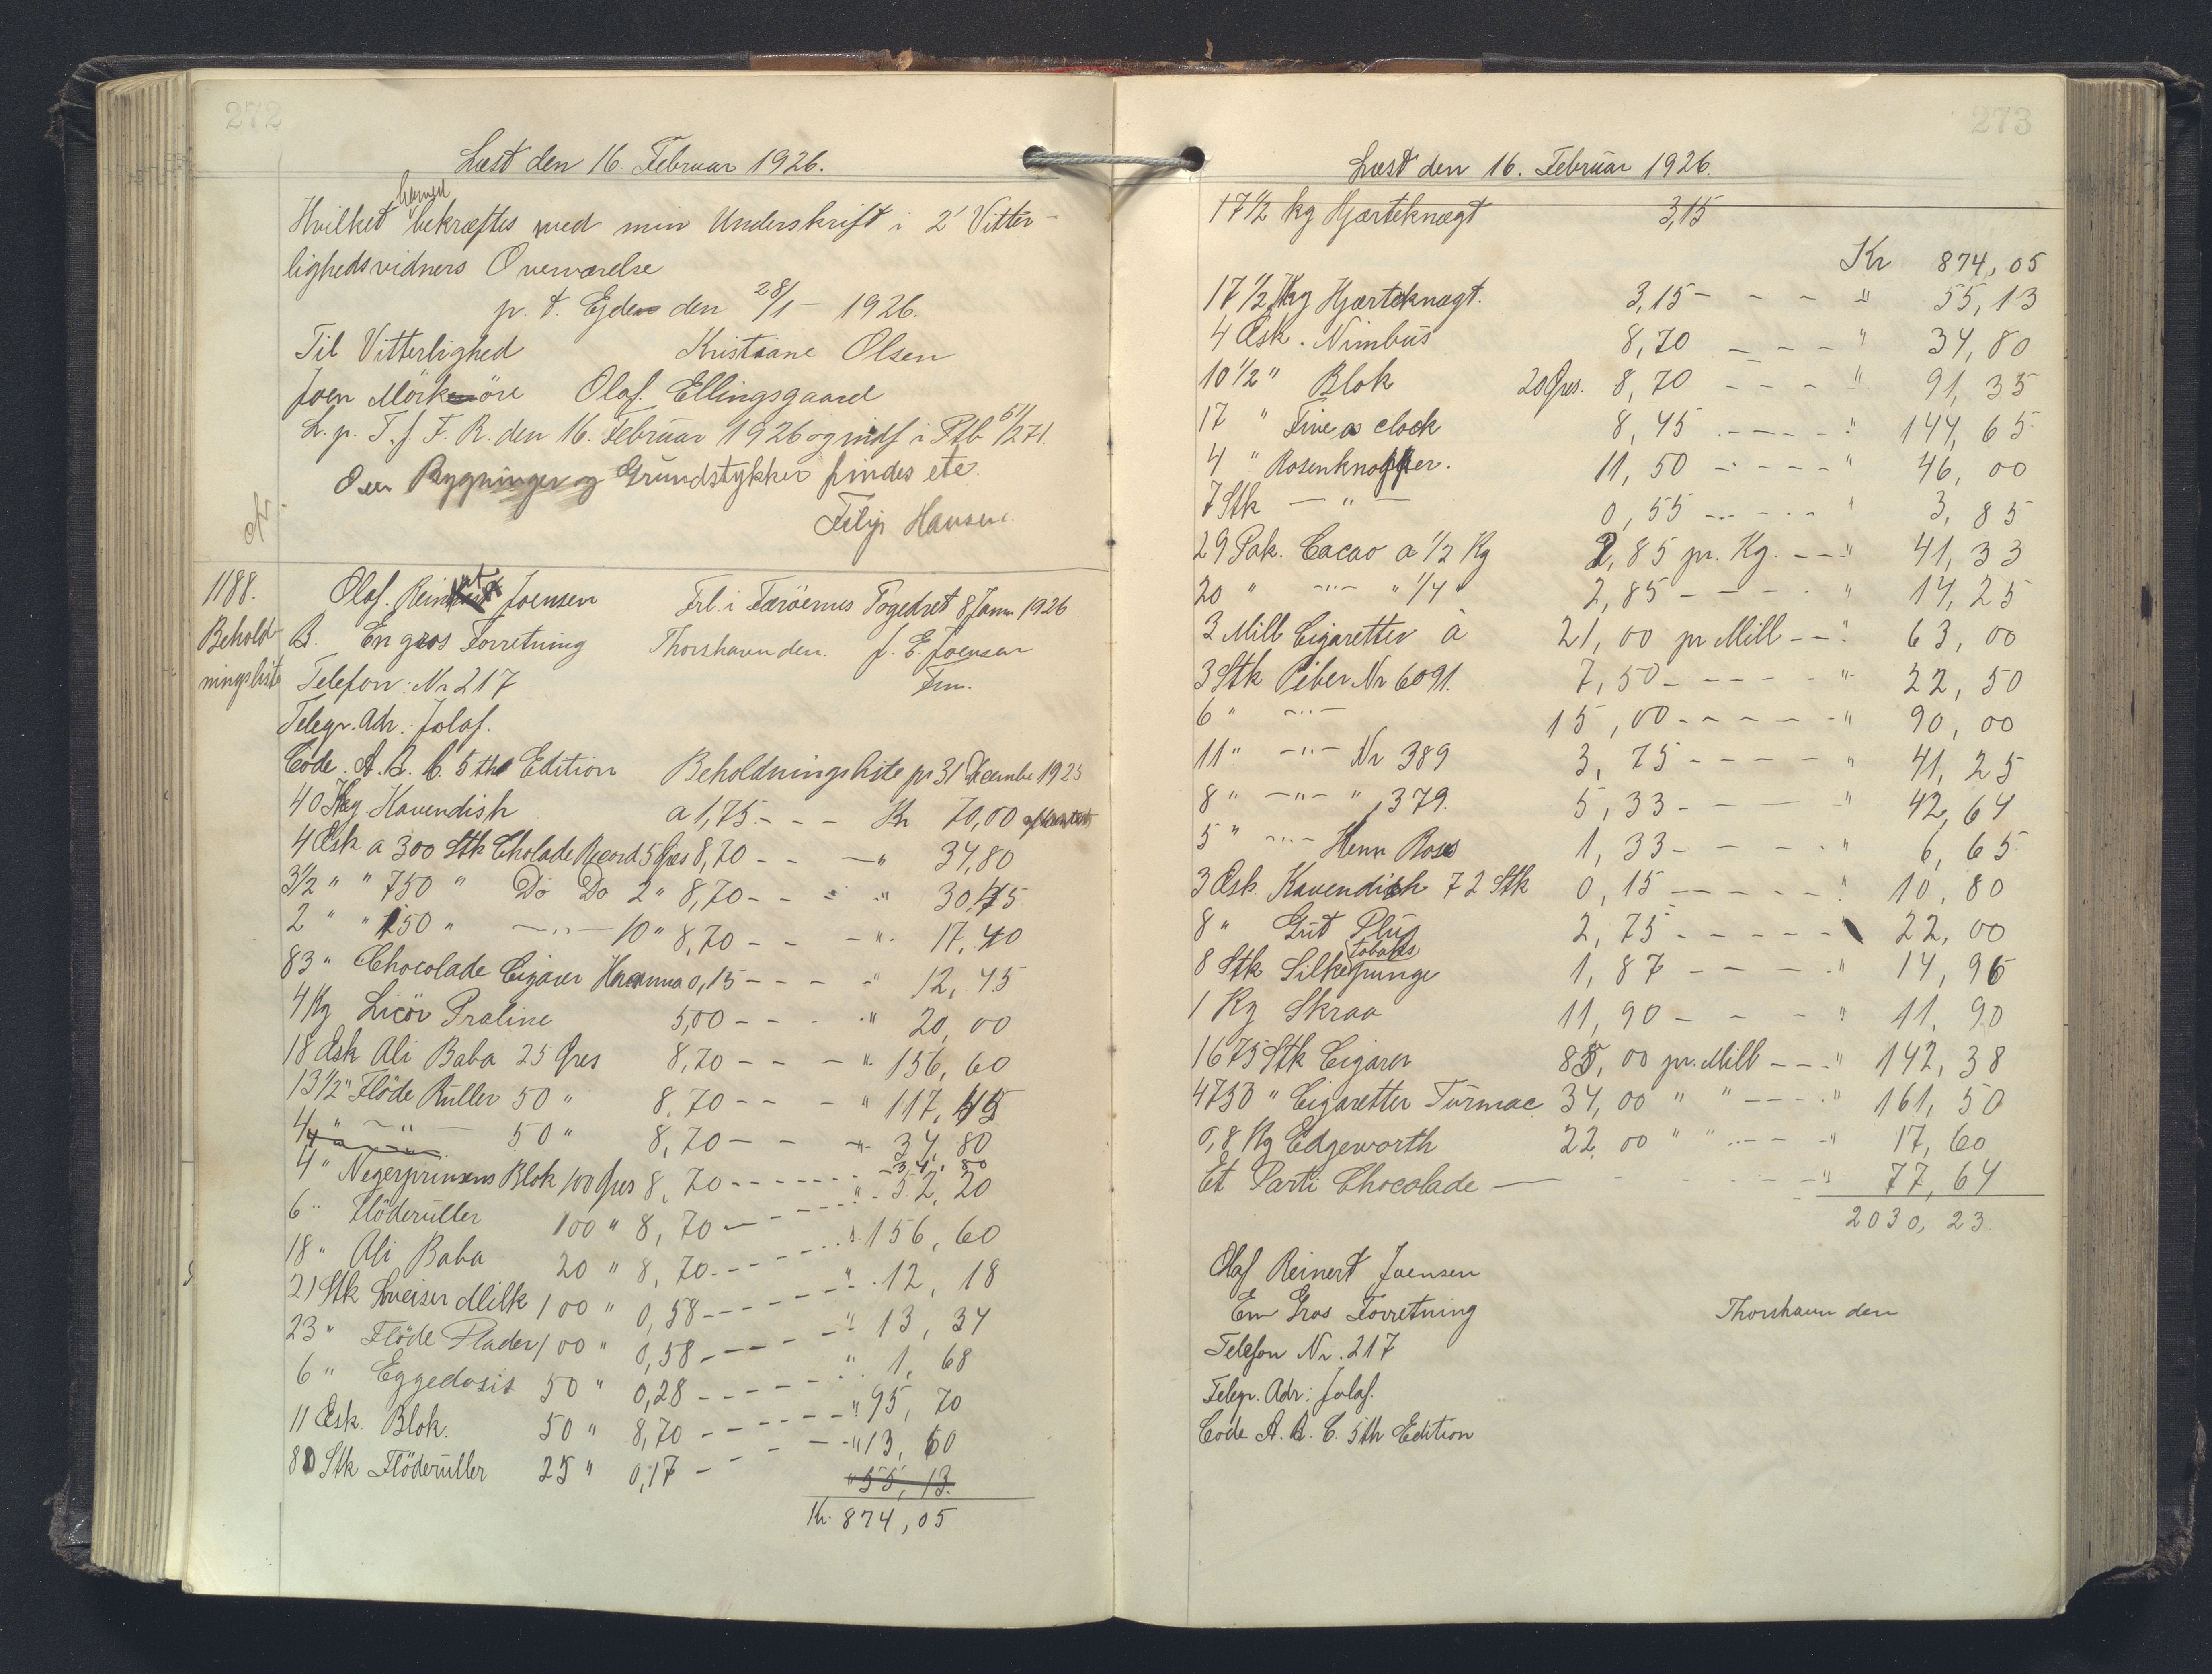 272
Læst den 16. Februar 1926.
herved
Hvilket bekræftes med min Underskrift i 2' Vitter-
lighedsvidners Overværelse
p. t. Ejde den 28/1 - 1926.
Til Vitterlighed Kristiane Olsen
Joen Mörkøre Olaf Ellingsgaard
L. p. T. f. F. R. den 16. Februar 1926 og indf i Ptb 51/271.
Over Bygninger og Grundstykker findes ete.
Filip Hansen
1188. Olaf. Reinert Joensen Frl. i Færöernes Fogedret 8 Janu 1926
Behold- B. En gros Forretning Thorshavn den. J. E. Joensen
ningsliste Telefon: Nr 217 Fm.
Telegr. Adr. Jolaf.
Code. A. B. C. 5 th Edition Beholdningsliste pr 31 December 1925
40 Kg. Kavendish a 1,75 - - - Kr 70,00
4 Æsk a 300 Stk Cholade Record 5 Øres 8,70 - - - " 34,80
3½ " " 750 " Do Do 2 " 8,70 - - " " 30,45
2 " " 150 " - " - 10 " 8,70 - - - " 17,40
83 " Chocolade Cigarer Havanna 0,15 - - - " 12,45
4 Kg Licör Praline 5,00 - - - " 20,00
18 Æsk Ali Baba 25 Øres 8,70 - - - " 156,60
13½ " Flöde Ruller 50 " 8,70 - - - " 117,45
4 " - " - 50 " 8,70 - - - " 34,80
4 " Negerprinsens Blok 100 Øres 8,70 - - - - - - - 34,80
6 " Flöderuller 100 " 8,70 - - - - " 52,20
18 " Ali Baba 20 " 8,70 - - - - - " 156,60
21 Stk Sveiser Milk 100 " 0,58 - - - - - " 12,18
23 " Flöde Plader 100 " 0,58 - - - - - " 13,34
6 " Eggedosis 50 " 0,28 - - - - - " 1,68
11 Æsk. Blok. 50 " 8,70 - - - - - " 95,70
80 Stk Flöderuller 25 " 0,17 - - - - - " 13,60
" 55,13.
Kr. 874,05
273
Læst den 16. Februar 1926.
17½ kg Hjærteknægt 3,15
Kr 874,05
17½ Kg Hjærteknægt. 3,15 - - - - " 55,13
4 Æsk. Nimbus 8,70 - - - " 34,80
10½ " Blok 20 Øres. 8,70 - - - - " 91,35
17 " Five o clock 8,45 - - - - - " 144,65
4 " Rosenknopper. 11,50 - - - - - " 46,00
7 Stk - " - 0,55 - - - - - " 3,85
29 Pak. Cacao a ½ Kg 2,85 pr. Kg. - - " 41,33
20 " - " - " ¼ " 2,85 - - - - " 14,25
3 Mill Cigaretter à 21,00 pr Mill - - " 63,00
3 Stk Piber Nr 6091. 7,50 - - - - - " 22,50
6 " - " - 15,00 - - - - - - " 90,00
11 " - " - Nr 389 3,75 - - - - - " 41,25
8 " - " - " 379. 5,33 - - - - " 42,64
5 " - " - Henn Boses 1,33 - - - - - " 6,65
3 Æsk. Kavendish 72 Stk 0,15 - - - - - " 10,80
8 " Gut Plug 2,75 - - - - - 22,00
tobaks
8 Stk Silkepunge 1,87 - - - - " 14,96
1 Kg Skraa 11,90 - - - - " 11,90
1675 Stk Cigarer 85,00 pr. Mill - - - " 142,38
4750 " Cigaretter Turmac 34,00 " " - - - - " 161,50
0,8 Kg Edgeworth 22,00 " " - - - - " 17,60
Et Parti Chocolade - - - - - - - - " 77,64
2030,23.
Olaf Reinert Joensen
En Gros Forretning Thorshavn den
Telefon Nr. 217
Telegr. Adr: Jolaf.
Code A. B. C. 5th Edition